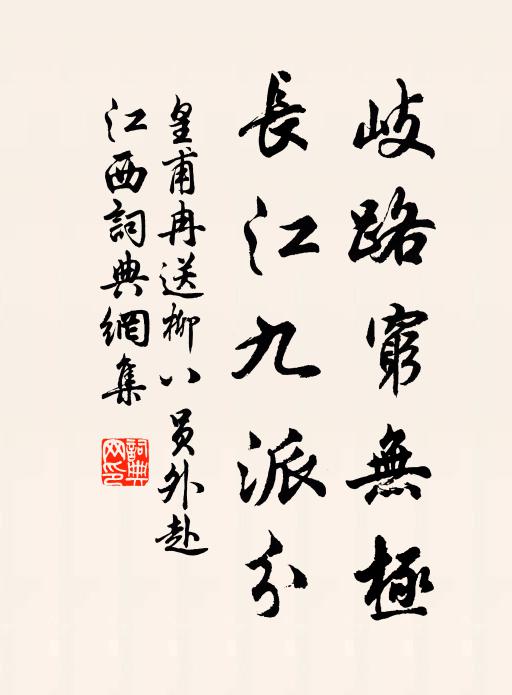 岐路窮無極
長江九派分
皇甫冉送柳八員外赴
江西詞典網集
詞典
网印